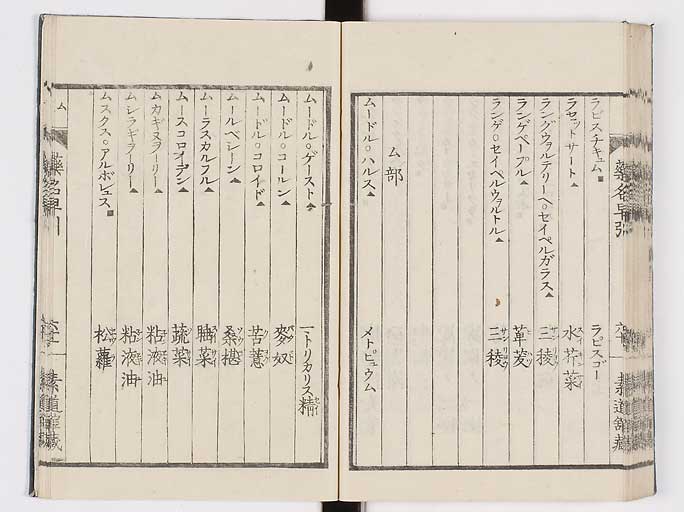 ラピスチキュム■ ラピスゴー
ラセットサート▲ 水芥菜
ラングヴァルデリーヘ○セイペルガラス▲ 三稜
ランゲペープル▲ 蓽茇
ランゲ○セイペルヴァルトル▲ 三稜
ム部
ムードル○ハルス▲ メトピュウム
ムードル○ゲースト▲ マトリカリス精
ムードル○コールン▲ 麥奴
ムードル○コロイド▲ 苦薏
ムールベシーン▲ 桑椹
ムーラスカルフル▲
ムースコロイデン▲ 蔬菜
ムカギヌヲーリー▲ 粘液油
ムシラギヲーリー▲ 粘液油
ムスクス○アルボレュス■ 松蘿
ム
藥名早引
素道館藏